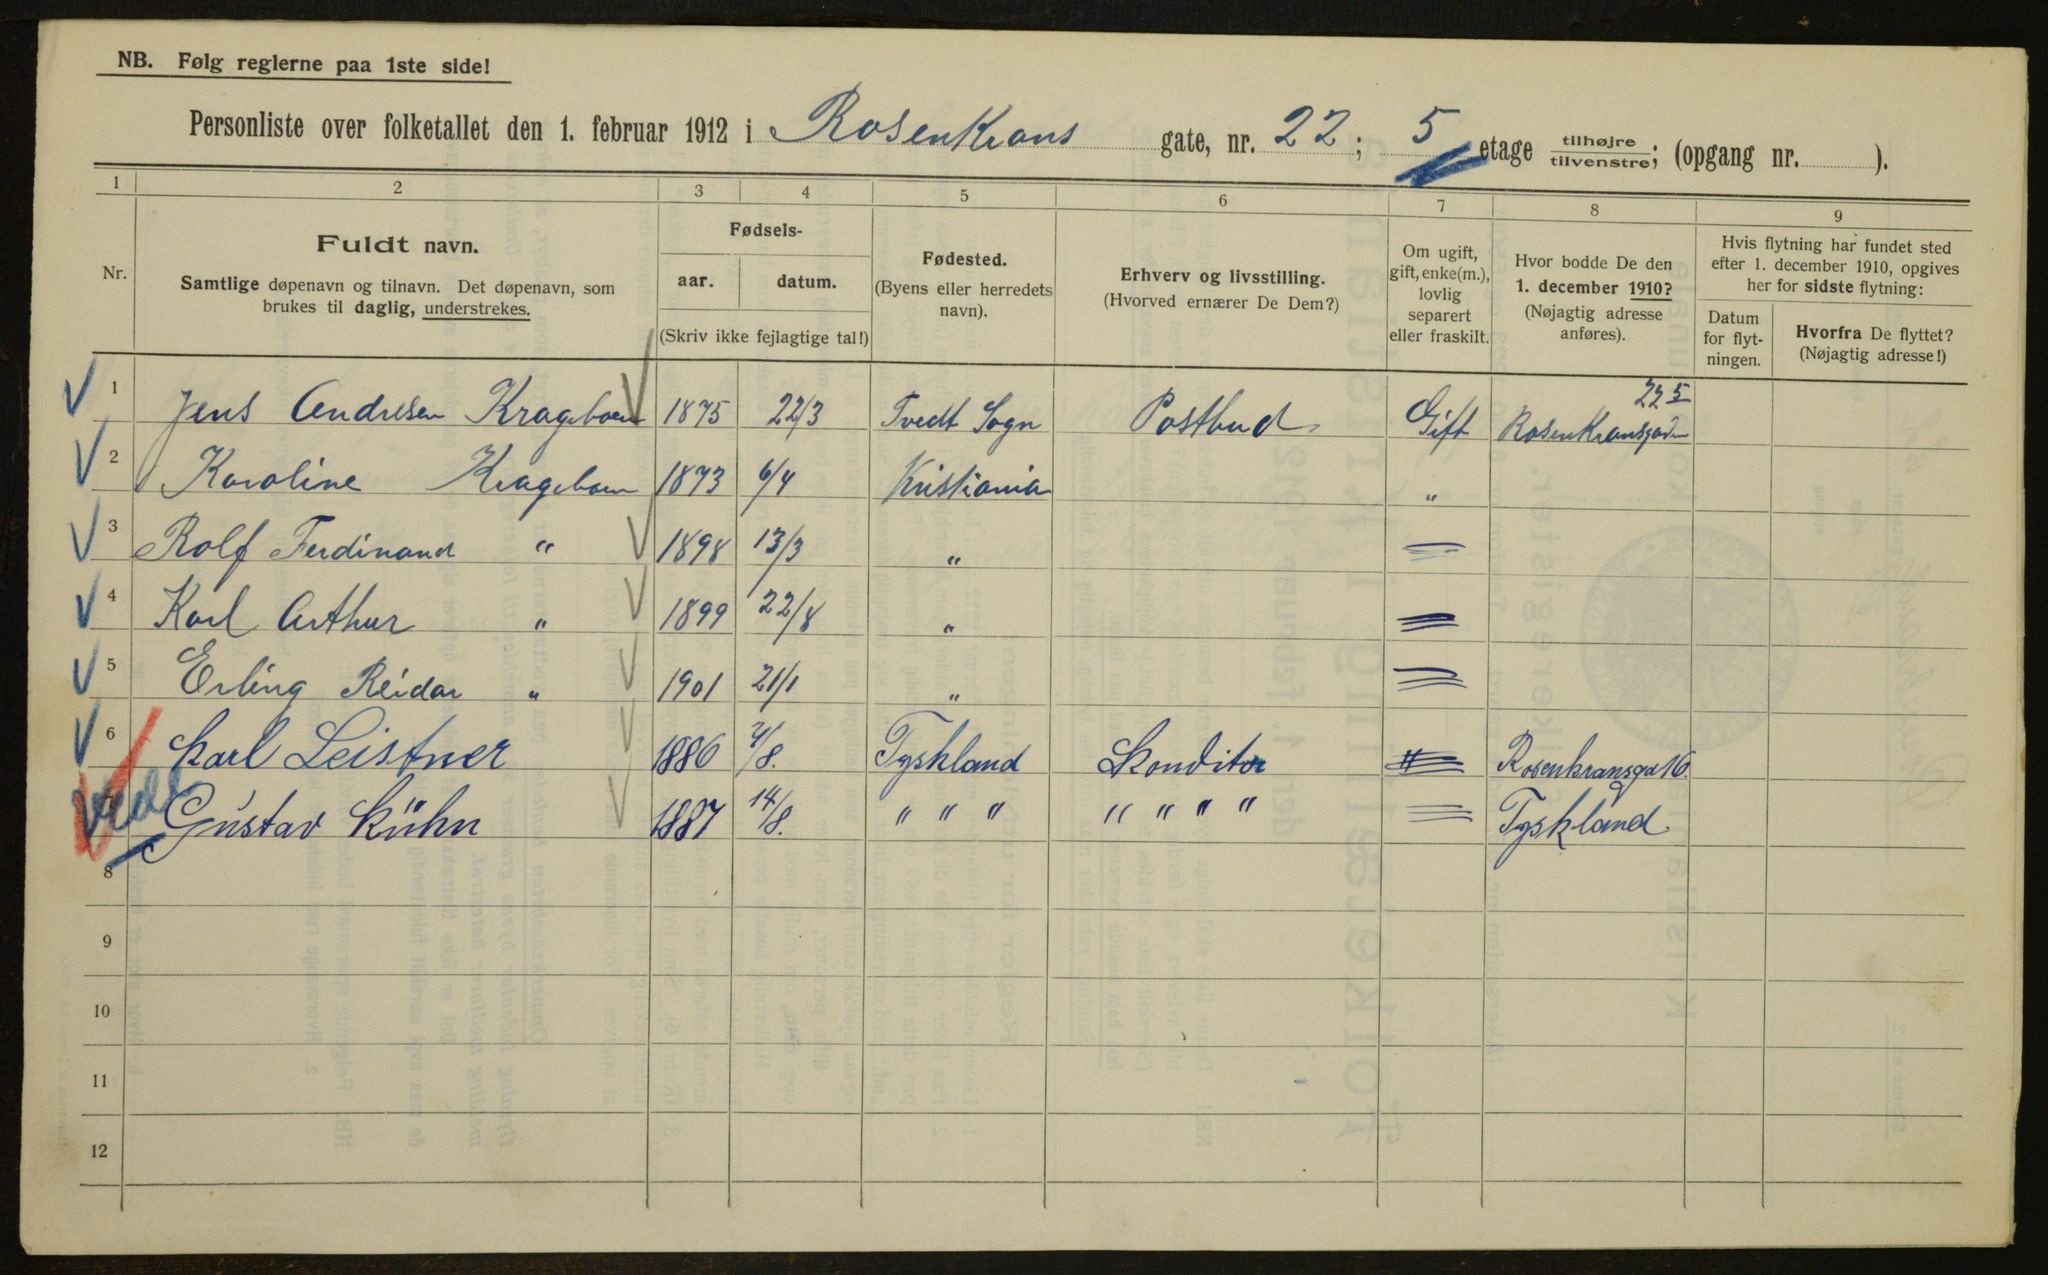 NB. Følg reglerne paa 1ste side!
Personliste over folketallet den 1. februar 1912 i Rosenkrans gate, nr. 22; 5 etage tilhøjre/tilvenstre; (opgang nr. ).
1 2 3 4 5 6 7 8 9
Nr.
Fuldt navn.
Samtlige døpenavn og tilnavn. Det døpenavn, som
brukes til daglig, understrekes.
Fødsels-
aar. datum.
(Skriv ikke fejlagtige tal!)
Fødested.
(Byens eller herredets
navn).
Erhverv og livsstilling.
(Hvorved ernærer De Dem?)
Om ugift,
gift, enke(m.),
lovlig
separert
eller fraskilt.
Hvor bodde De den
1. december 1910?
(Nøjagtig adresse
anføres).
Hvis flytning har fundet sted
efter 1. december 1910, opgives
her for sidste flytning:
Datum
for flyt-
ningen.
Hvorfra De flyttet?
(Nøjagtig adresse!)
1 Jens Andresen Krageboen 1875 22/3 Tvedt Sogn Postbud Gift Rosenkransgaden 22 5
2 Karoline Krageboen 1873 6/4 Kristiania "
3 Rolf Ferdinand " 1898 13/3 "
4 Karl Arthur " 1899 22/8 "
5 Erling Reidar " 1901 21/1 "
6 Karl Leistner 1886 /8. Tyskland Konditor Rosenkransga 16.
Gustav Kühn 1887 14/8. " " " " " " " Tyskland
8
9
10
11
12